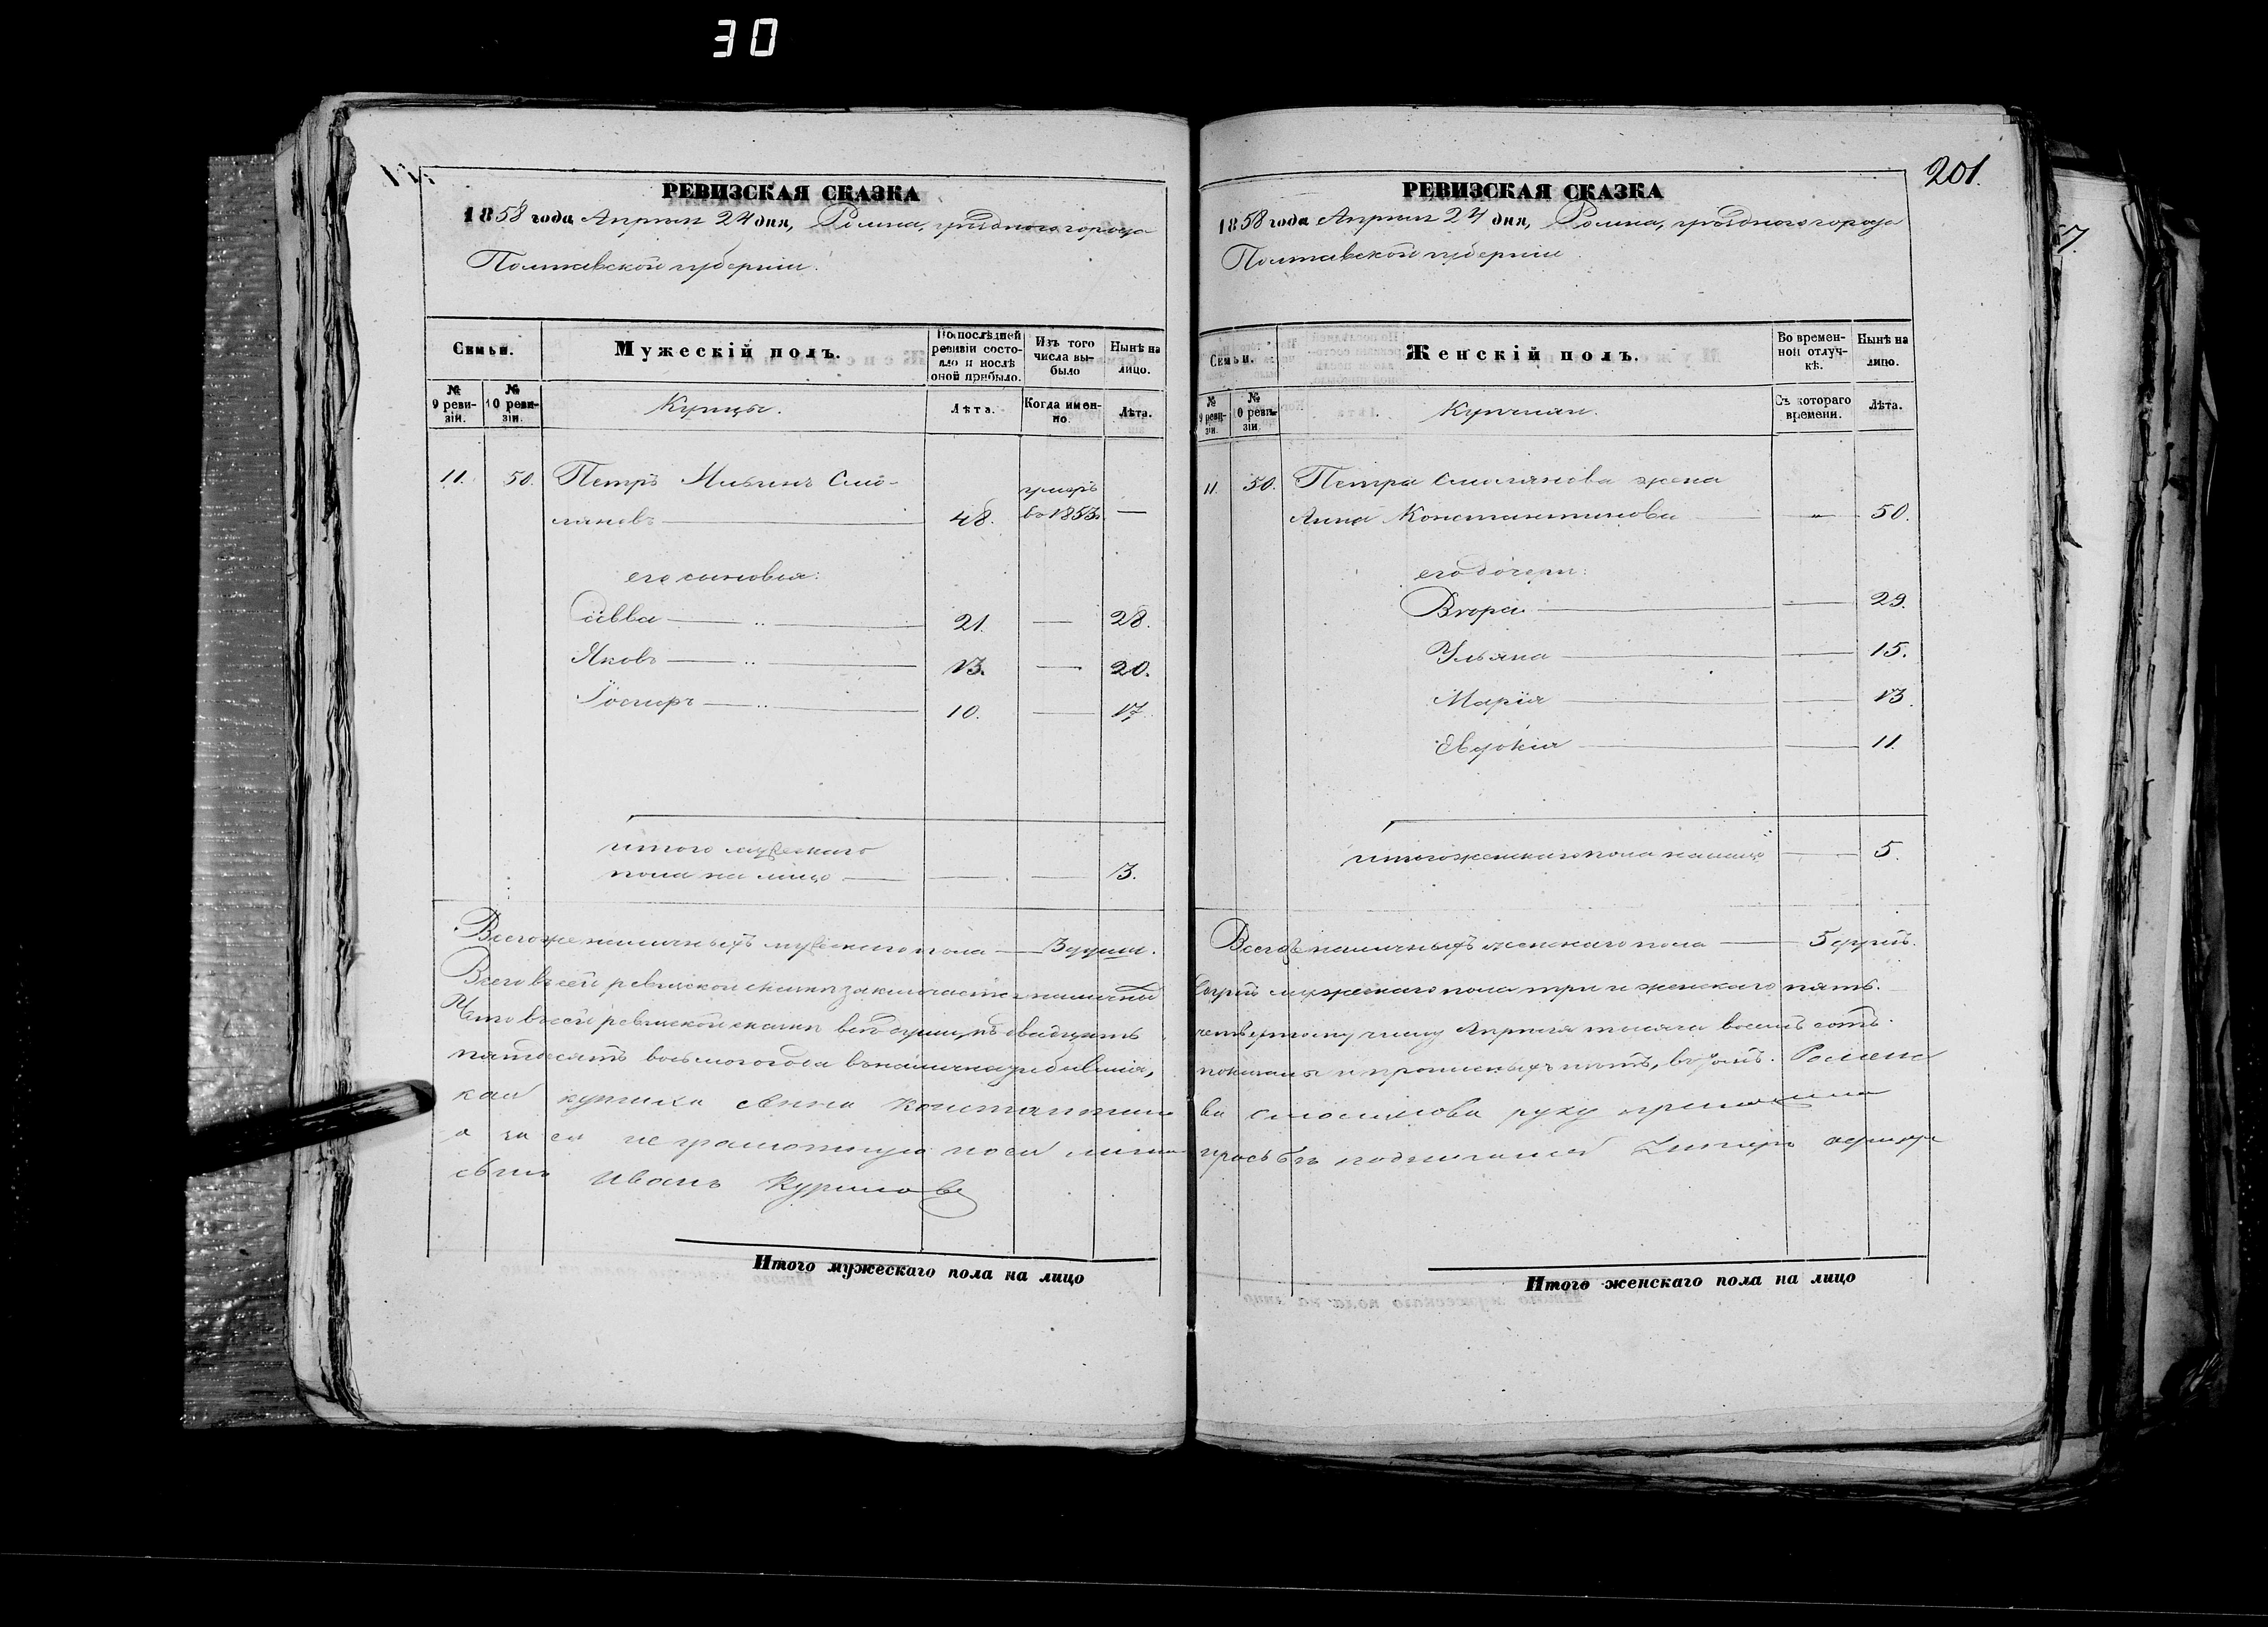 30
201.
РЕВИЗСКАЯ СКАЗКА
1858 года Апрѣля 24 дня, Ромна, уѣзднаго города
Полтавской губерніи.
Семьи.
Мужескій полъ.
По послѣдней ревизіи состояло и послѣ оной прибыло.
Изъ того числа выбыло
Нынѣ на лицо.
№ 9 ревизіи.
№ 10 ревизіи.
Купцы.
Лѣта.
Когда именно.
Лѣта.
11. 50. Петръ Ильинъ Смо-
ляновъ 48. умеръ въ 1853. —
его сыновья:
Савва — „ — 21. — 28.
Яковъ — „ — 13. — 20.
— „ — 10. — 17.
итого мужескаго
пола на лицо — — — 3.
Всего же наличныхъ мужескаго пола — 3 души.
Всего въ сей ревизской сказкѣ заключается наличныхъ
Что въ сей ревизской сказкѣ всѣ души, къ двадцать
пятьдесятъ восьмого года въ налична
кая купчиха Анна Константино
а за ея неграмотную
Иванъ
Итого мужескаго пола на лицо
РЕВИЗСКАЯ СКАЗКА
1858 года Апрѣля 24 дня, Ромна, уѣзднаго города
Полтавской губерніи
Семьи.
Женскій полъ.
Во временной отлучкѣ.
Нынѣ на лицо.
№ 9 ревизіи.
№ 10 ревизіи
Купчихи.
Съ котораго времени.
Лѣта.
11. 50. Петра Смолянова жена
Анна Константинова — „ — 50.
его дочери:
Вѣра — — 29.
Ульяна — — 15.
Марія — — 13.
Евдокія — — 11.
итого женскаго пола на лицо — — 5.
Всего же наличныхъ женскаго пола — 5 душъ.
душъ мужескаго пола три и женскаго пять.
четвертому числу Апрѣля тысяча восемь сотъ
показаны и прописныхъ нѣтъ, въ томъ. Роменс
ва Смолянова руку приложила
прозьбѣ подписался
Итого женскаго пола на лицо